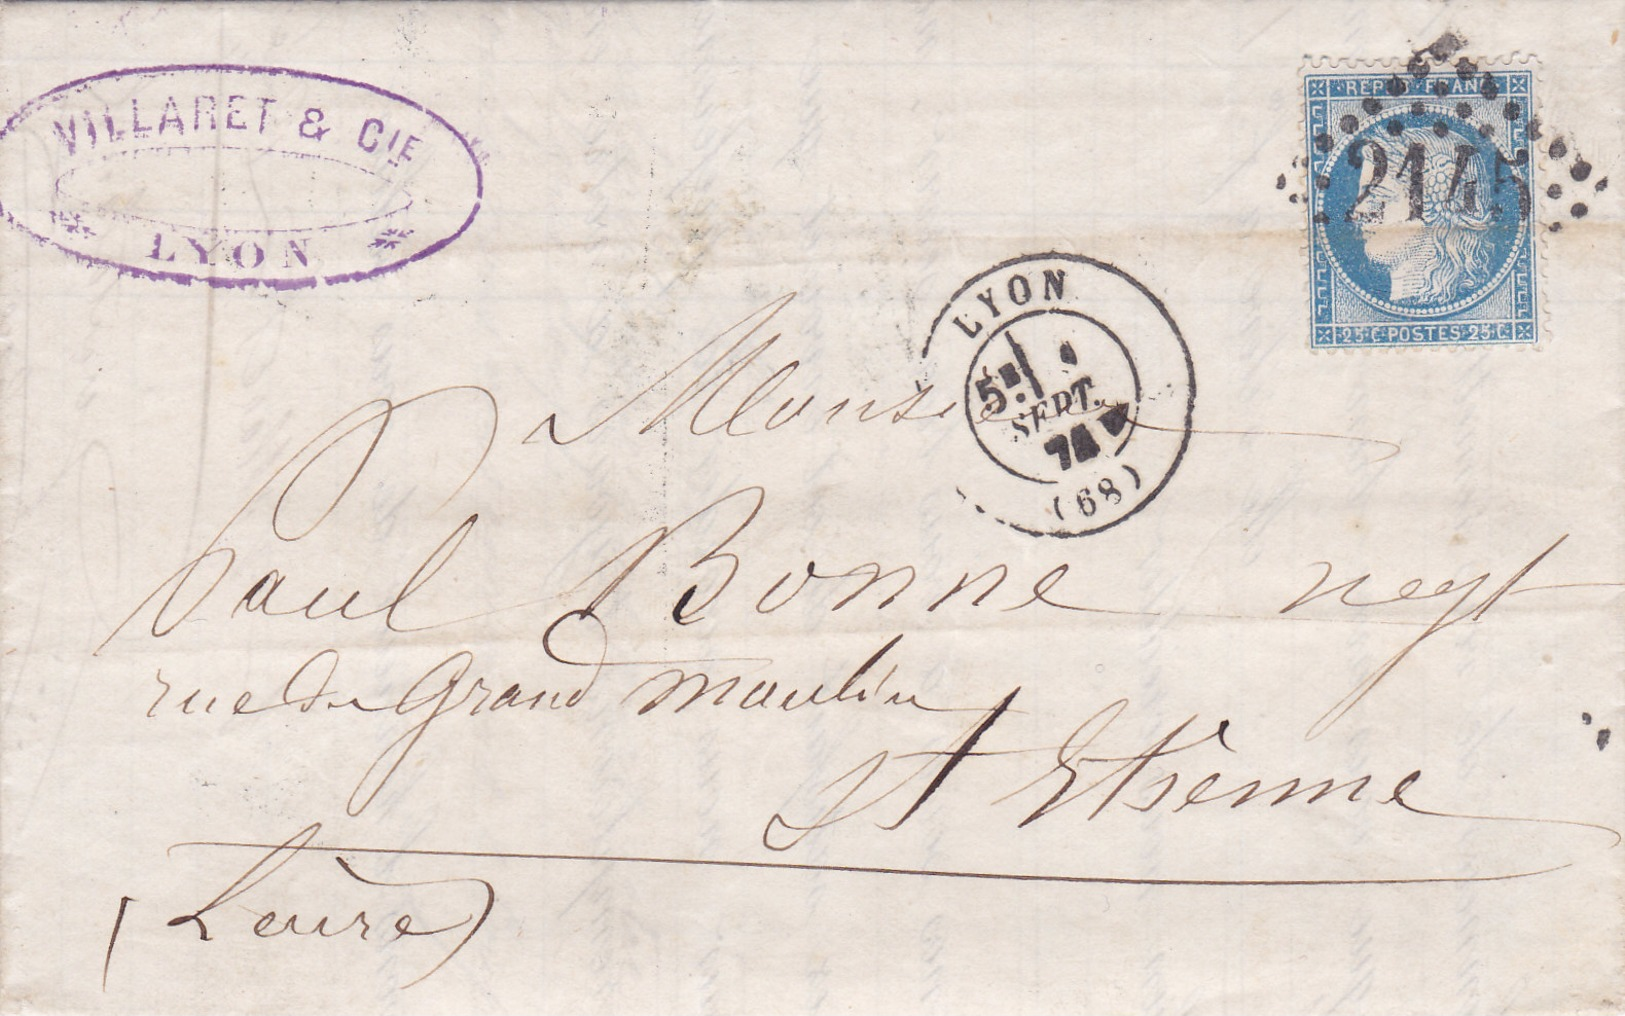 VILLARET & CIE
LYON
REPUB FRANC
2145
25 C POSTES 25 C
LYON
5E
SEPT.
(68)
Monsieur
Paul Bonne negt
rue du Grand moulin
St Etienne
(Loire)